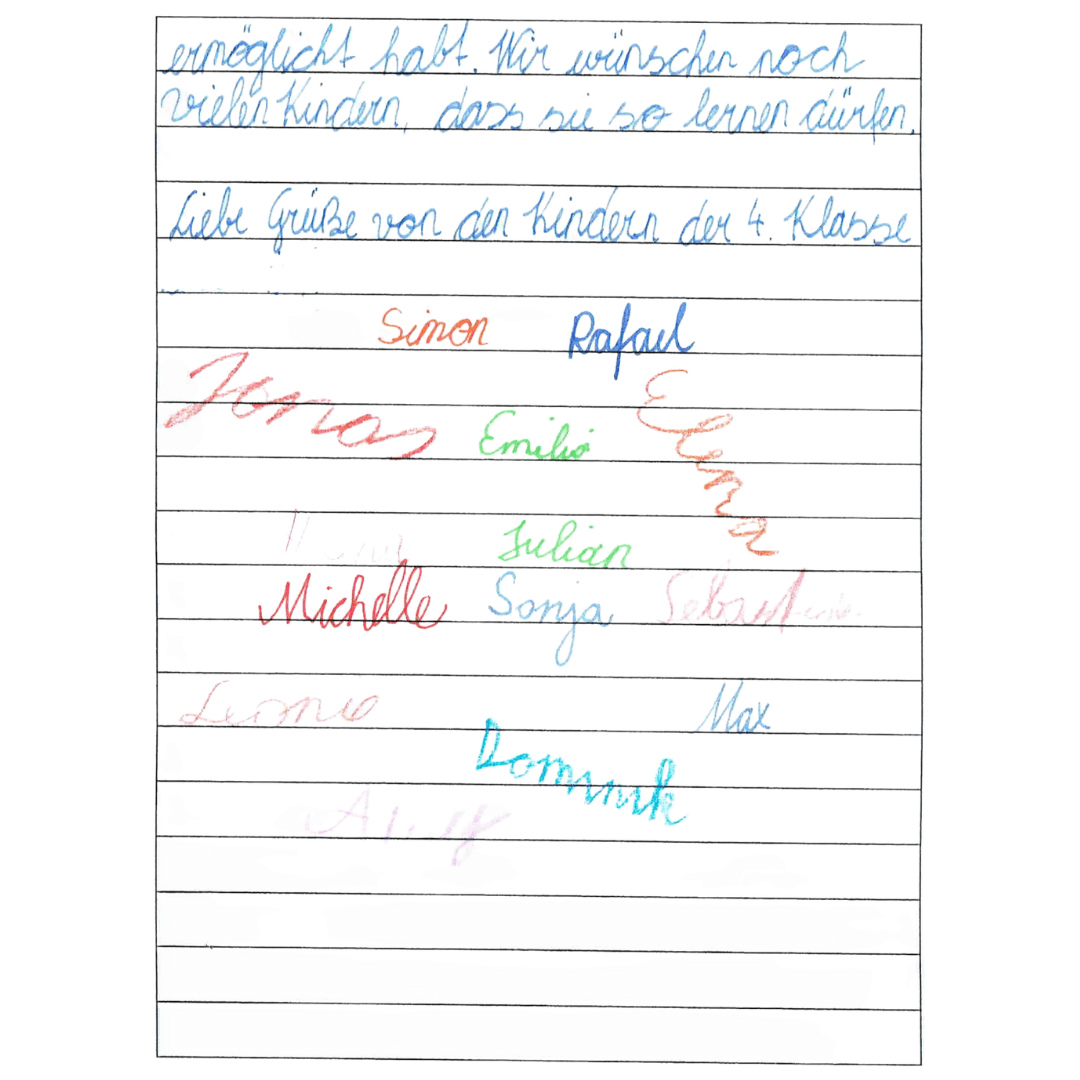 ermöglicht habt. Wir wünschen noch
vielen Kindern, dass sie so lernen dürfen.
Liebe Grüße von den Kindern der 4. Klasse
Simon Rafael
Jonas Emilio Elena
Julian
Michelle Sonja Sebastian
Max
Dominik